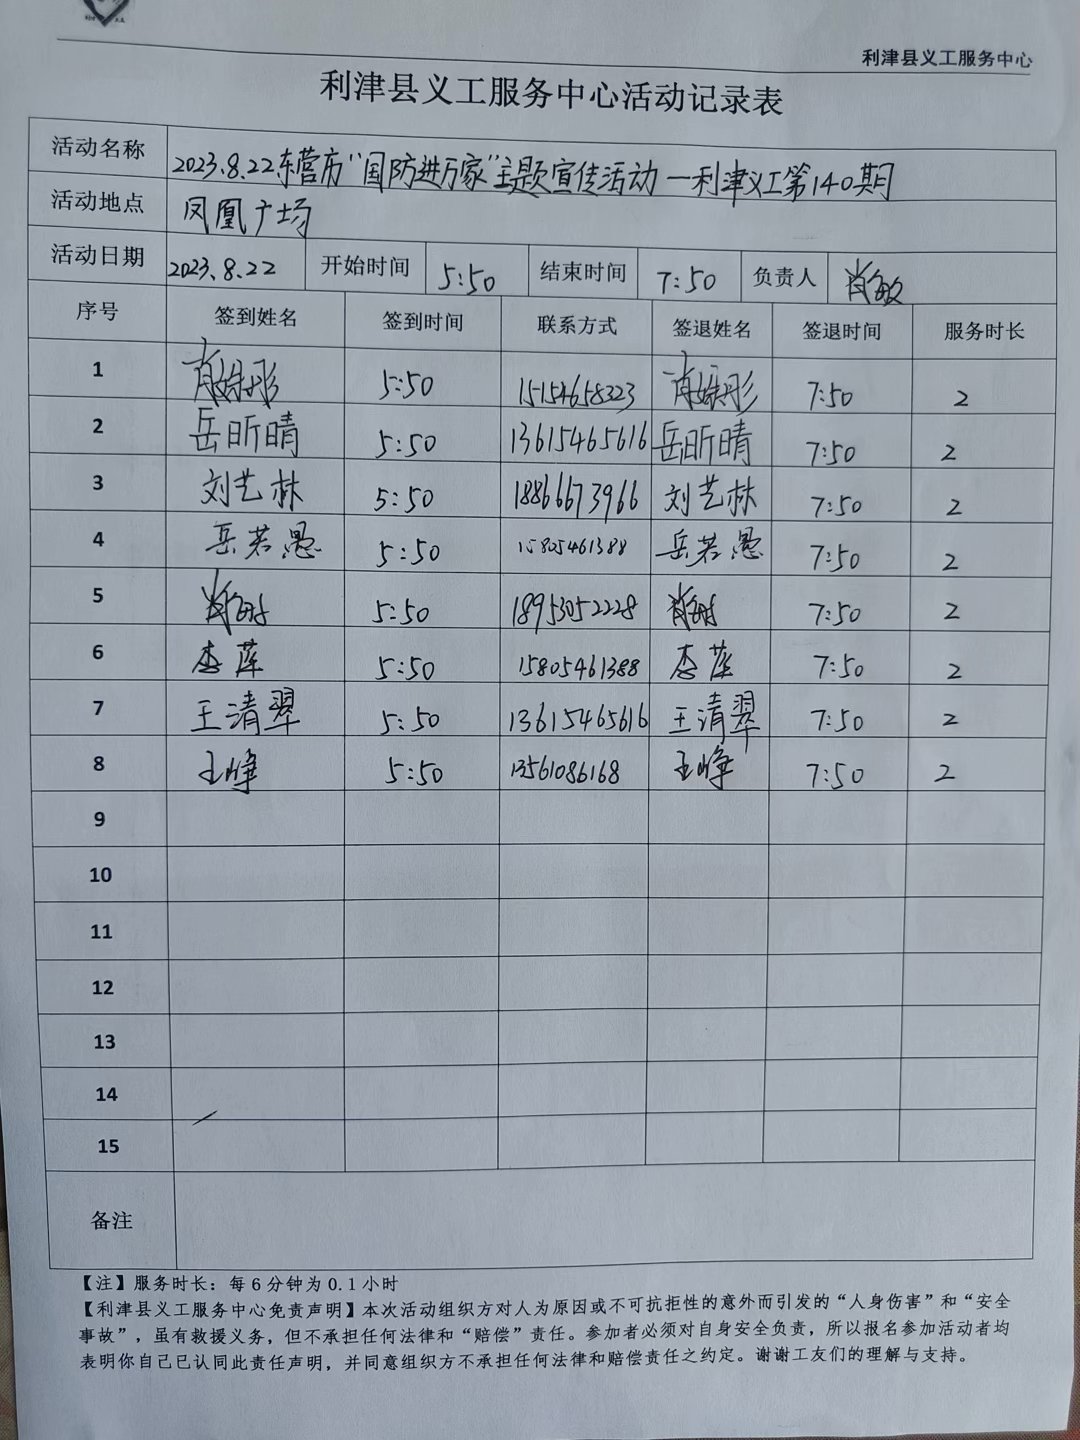 利津县义工服务中心
利津县义工服务中心活动记录表
活动名称 2023.8.22东营市“国防进万家”主题宣传活动—利津义工第140期
活动地点 凤凰广场
活动日期 2023.8.22 开始时间 5:50 结束时间 7:50 负责人 肖敏
序号 签到姓名 签到时间 联系方式 签退姓名 签退时间 服务时长
1 5:50 15154658323 7:50 2
2 岳昕晴 5:50 13615465616 岳昕晴 7:50 2
3 刘艺林 5:50 18866673966 刘艺林 7:50 2
4 岳若愚 5:50 15805461388 岳若愚 7:50 2
5 5:50 18953052228 7:50 2
6 李萍 5:50 15805461388 李萍 7:50 2
7 王清翠 5:50 13615465616 王清翠 7:50 2
8 王峥 5:50 13561086168 王峥 7:50 2
9
10
11
12
13
14
15
备注
【注】服务时长：每6分钟为0.1小时
【利津县义工服务中心免责声明】本次活动组织方对人为原因或不可抗拒性的意外而引发的“人身伤害”和“安全
事故”，虽有救援义务，但不承担任何法律和“赔偿”责任。参加者必须对自身安全负责，所以报名参加活动者均
表明你自己已认同此责任声明，并同意组织方不承担任何法律和赔偿责任之约定。谢谢工友们的理解与支持。